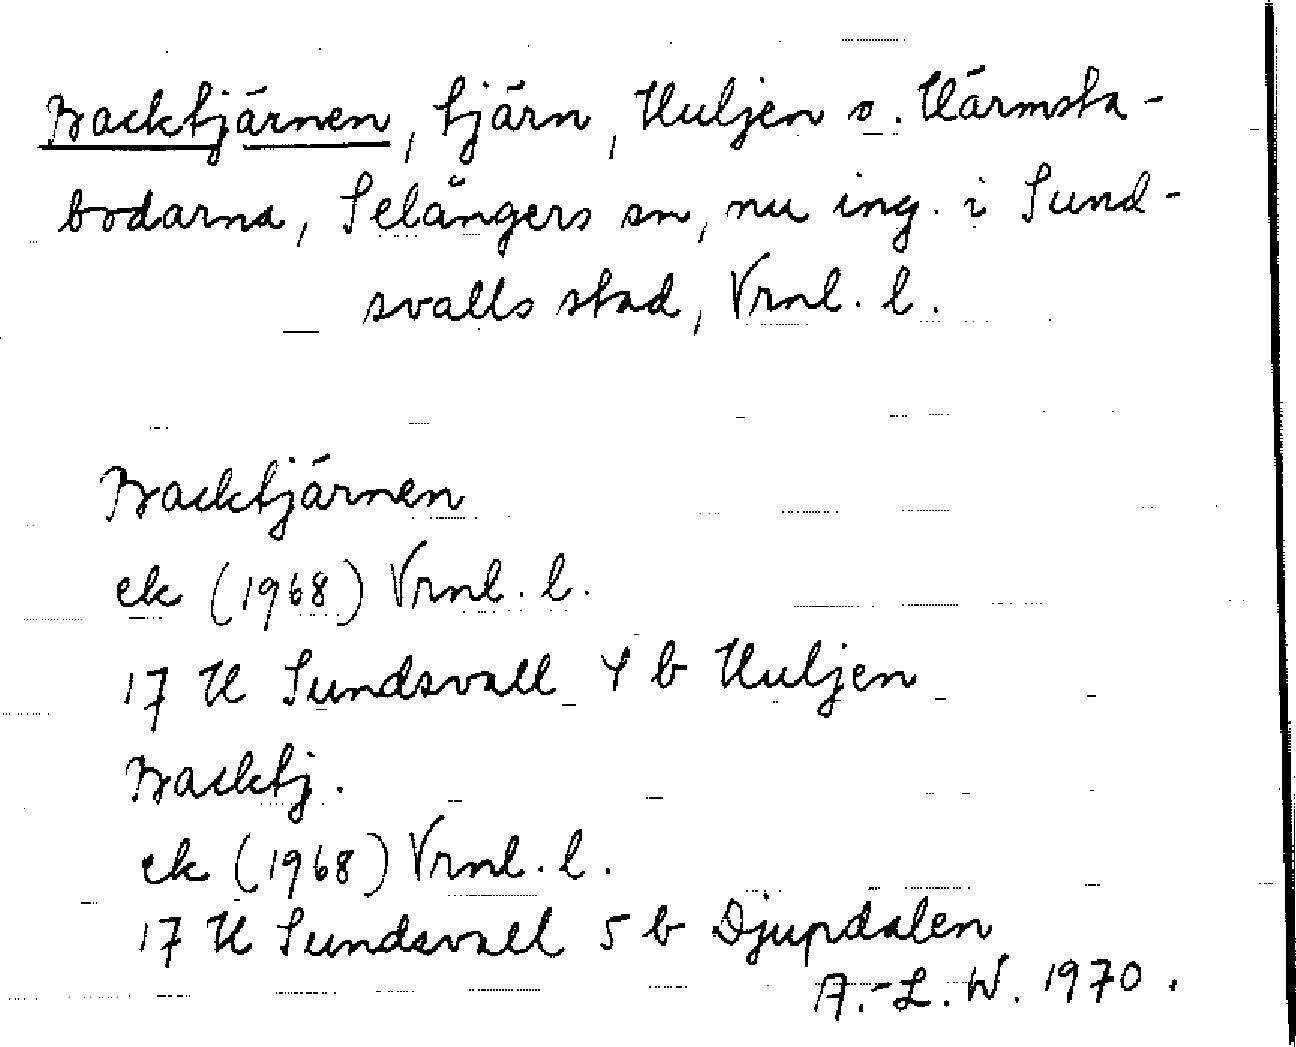 Backtjärnen, tjärn, Huljen o. Härmsta-
bodarna, Selångers sn, nu ing. i Sund-
svalls stad, Vrnl. l.
Backtjärnen
ek (1968) Vrnl. l.
17 H Sundsvall 4 b Huljen
Backtj.
ek (1968) Vrnl. l.
17 H Sundsvall 5 b Djupdalen
A.-L. W. 1970.